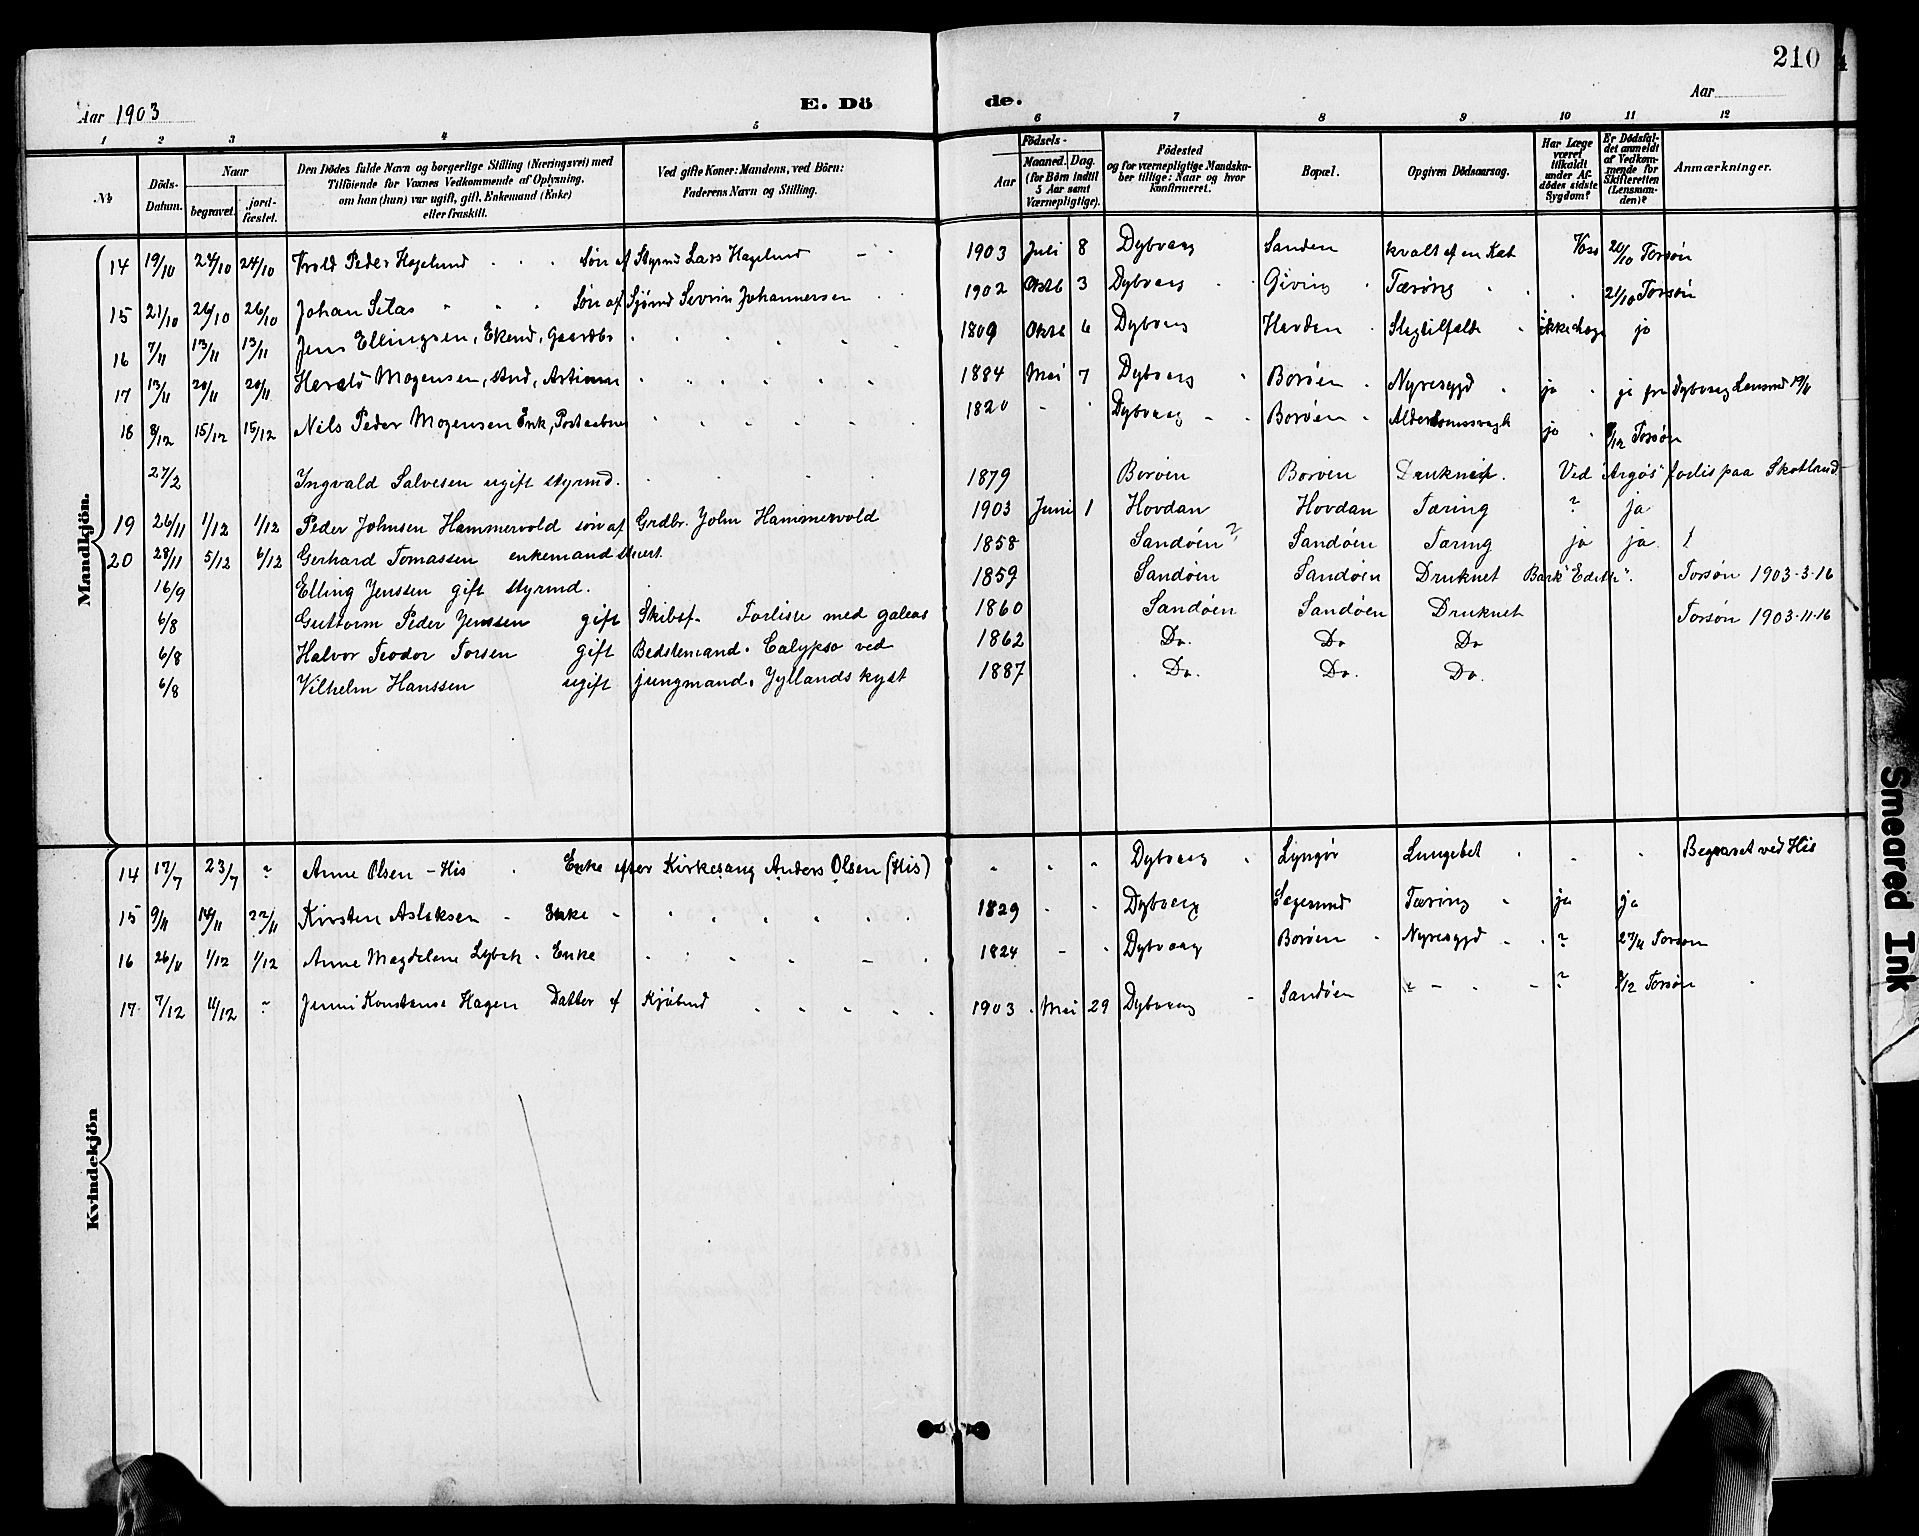 210
Aar 1903
E. Dö
de.
Aar
1 2 3 4 5 6 7 8 9 10 11 12
№
Döds-Datum.
Naar
begravet.
jord-fæstet.
Den Dödes fulde Navn og borgerlige Stilling (Næringsvei) med
Tilföiende for Voxnes Vedkommende af Oplysning,
om han (hun) var ugift, gift, Enkemand (Enke)
eller fraskilt.
Ved gifte Koner: Mandens, ved Börn:
Faderens Navn og Stilling.
Födsels-
Aar
Maaned. Dag.
(for Börn indtil
5 Aar samt
Værnepligtige).
Födested
og for værnepligtige Mandska-
ber tillige: Naar og hvor
Konfirmeret.
Bopæl.
Opgiven Dödsaarsag.
Har Læge
været
tilkaldt
under Af-
dödes sidste
Sygdom?
Er Dödsfal-
det anmeldt
af Vedkom-
mende for
Skifteretten
(Lensman-
den)?
Anmærkninger.
Mandkjön.
14 19/10 24/10 24/10 Peder Hagelund Søn af Styrmd Lars Hagelund 1903 Juli 8 Dybvaag Sanden kvalt af en Kat 20/10 Torsøn
15 21/10 26/10 26/10 Johan Silas Søn af Sjømd Severin Johannersen 1902 Oktb 3 Dybvaag Giving Tæring 21/10 Torsøn
16 7/11 13/11 13/11 Jens Ellingsen, Ekemd, Gaardbr 1809 Oktb 6 Dybvaag Havden Slagtilfælde ikke Læge jo
17 13/11 20/11 20/11 Harald Mogensen, 1884 Mai 7 Dybvaag Borøen Nyresygd ja ja fra Dybvaag Lensmd 19/11
18 8/12 15/12 15/12 Nils Peder Mogensen Enk, Postaabner 1820 Dybvaag Borøen Alderdomssvagh ja 9/12 Torsøn
27/2 Ingvald Salvesen ugift styrmd. 1879 Borøen Borøen Druknet. Ved "Argos" forlis paa Skotland
19 26/11 1/12 1/12 Peder Johnsen Hammervold søn af Grdbr. John Hammervold 1903 Juni 1 Hovdan Hovdan Tæring ? ja
20 28/11 5/12 6/12 Gerhard Tomassen enkemand stuert. 1858 Sandøen ? Sandøen Tæring ja ja
16/9 Elling Jenssen gift styrmd. 1859 Sandøen Sandøen Druknet Bark "Edith". Torsøn 1903-3-16
6/8 Guttorm Peder Jenssen gift Skibsf. Forliste med galeas 1860 Sandøen Sandøen Druknet Torsøn 1903-11-16
6/8 Halvor Teodor Torsen gift Bedstemand. Calypso ved 1862 Do. Do. Do
6/8 Vilhelm Hanssen ugift jungmand. Jyllands kyst 1887 Do. Do. Do.
Kvindekjön
14 17/7 23/7 ? Anne Olsen - His Enke efter Kirkesang Anders Olsen (His) Dybvaag Lyngør Lungebet Begravet ved His
15 9/11 14/11 22/11 Kirsten Aslaksen Enke 1829 Dybvaag Sagesund Tæring ja ja
16 26/11 1/12 1/12 Anne Magdalene Lybek Enke 1824 Dybvaag Borøen Nyresygd ? 27/11 Torsøn
17 7/12 11/12 ? Jenni Konstanse Hagen Datter af 1903 Mai 29 Dybvaag Sandøen ? 8/12 Torsøn
Smeared Ink